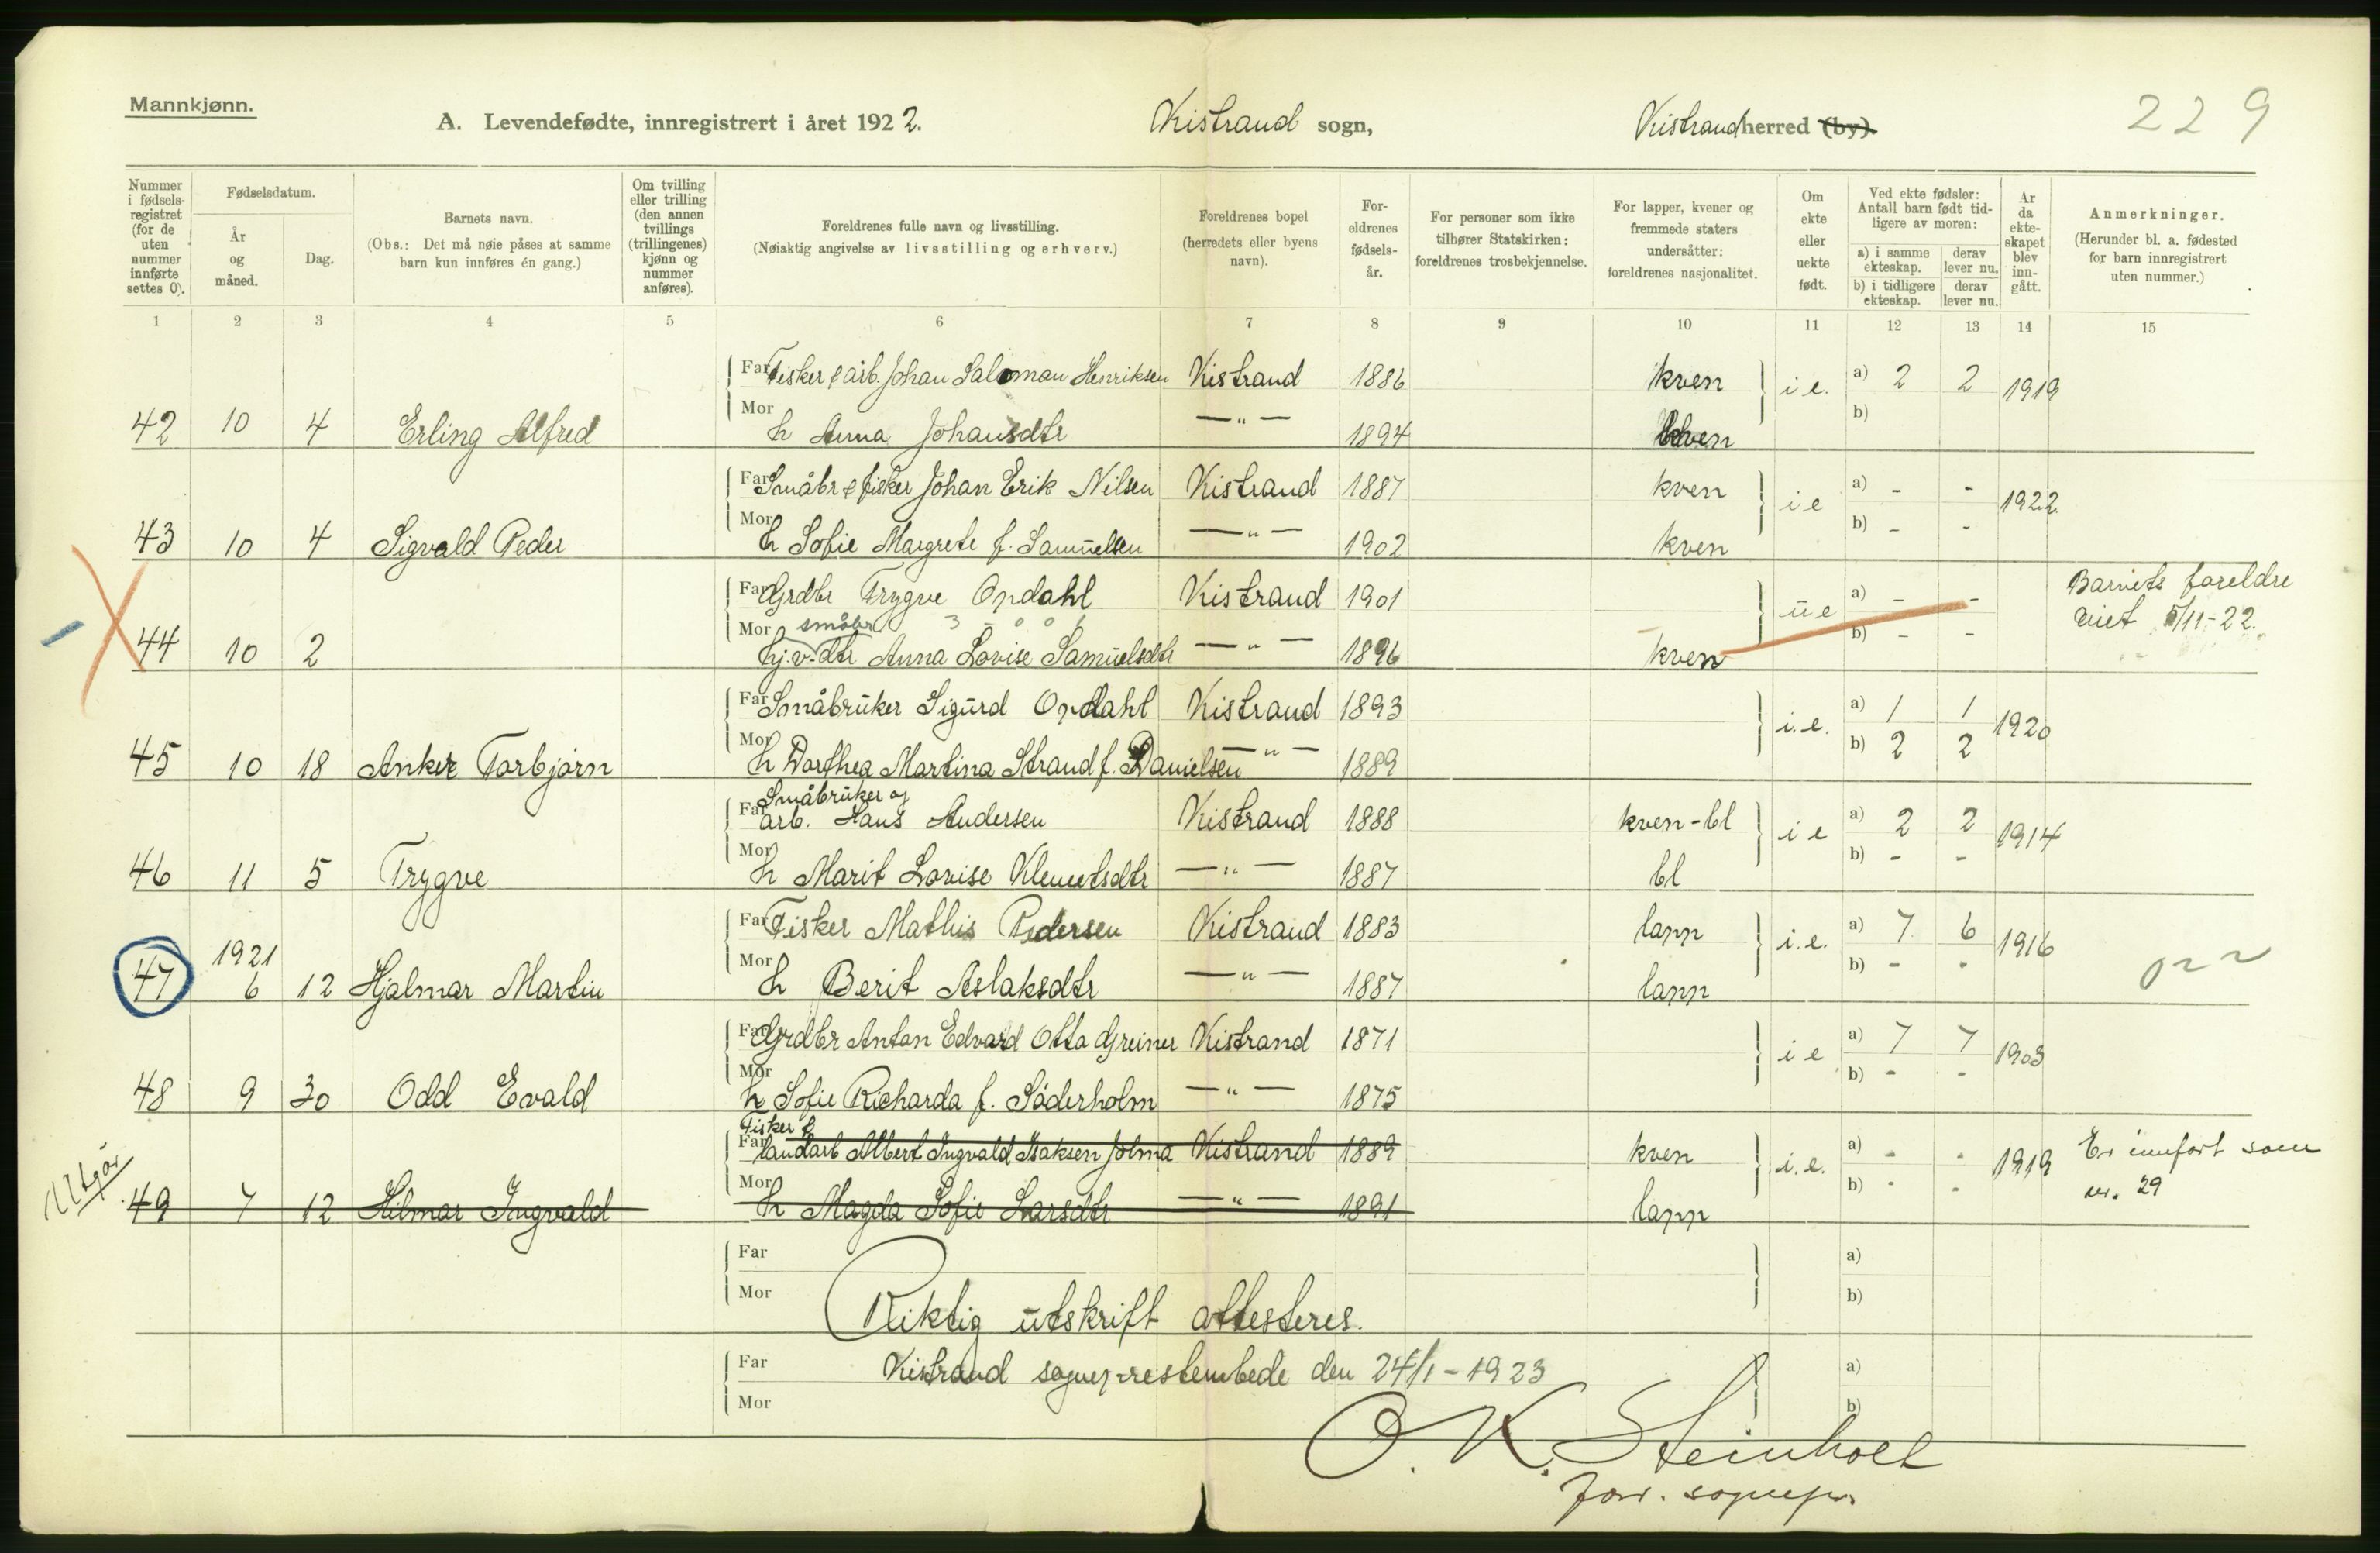 Mannkjønn.
A. Levendefødte, innregistrert i året 1922. Kistrand sogn, Kistrand herred (by). 229
Nummer i fødselsregistret (for de uten nummer innførte settes 0).
Fødselsdatum.
År og måned.
Dag.
Barnets navn.
(Obs.: Det må nøie påses at samme barn kun innføres én gang.)
Om tvilling eller trilling (den annen tvillings (trillingenes) kjønn og nummer anføres).
Foreldrenes fulle navn og livsstilling.
(Nøiaktig angivelse av livsstilling og erhverv.)
Foreldrenes bopel (herredets eller byens navn).
Foreldrenes fødselsår.
For personer som ikke tilhører Statskirken: foreldrenes trosbekjennelse.
For lapper, kvener og fremmede staters undersåtter: foreldrenes nasjonalitet.
Om ekte eller uekte født.
Ved ekte fødsler: Antall barn født tidligere av moren:
a) i samme ekteskap. derav lever nu.
b) i tidligere ekteskap. derav lever nu.
År da ekteskapet blev inngått.
Anmerkninger.
(Herunder bl. a. fødested for barn innregistrert uten nummer.)
1 2 3 4 5 6 7 8 9 10 11 12 13 14 15
Far Fisker & arb. Johan Salomon Henriksen Kistrand 1886 kven i e. a) 2 2 1919
42 10 4 Erling Alfred Mor h Anna Johansdtr —"— 1894 kven b)
Far Småbr & fisker Johan Erik Nilsen Kistrand 1887 kven i e a) - - 1922
43 10 4 Sigvald Peder Mor h Sofie Margrete f. Samuelsen —"— 1902 kven b) - -
Far Grdbr Trygve Opdahl Kistrand 1901 ue a) - - Barnets foreldre
småbr
44 10 2 Mor hj.v. dtr Anna Lovise Samuelsdtr —"— 1896 kven b) - - viet 5/11-22.
Far Småbruker Sigurd Opdahl Kistrand 1893 i.e. a) 1 1 1920
45 10 18 Anker Torbjørn Mor h Dorthea Martina Strand f. Danielsen —"— 1889 b) 2 2
Småbruker og
Far arb. Hans Andersen Kistrand 1888 kven-bl i e a) 2 2 1914
46 11 5 Trygve Mor h Marit Lovise Klemetsdtr —"— 1887 bl b) - -
Far Fisker Mathis Pedersen Kistrand 1883 lapp i.e. a) 7 6 1916
1921
47 6 12 Hjalmar Martin Mor h Berit Aslaksdtr —"— 1887 lapp b) - -
Far Grdbr Anton Edvard Otto Greiner Kistrand 1871 i e a) 7 7 1903
48 9 30 Odd Evald Mor h Sofie Richarda f. Söderholm —"— 1875 b) - -
Fisker &
Far landarb Albert Ingvald Isaksen Jolma Kistrand 1889 kven i.e. a) - - 1919 Er innført som
Utgår
49 7 12 Hilmar Ingvald Mor h Magda Sofie Larsdtr —"— 1891 lapp b) - - nr. 29
Far a)
Mor b)
Riktig utskrift attesteres.
Far Kistrand sogneprestembede den 24/1-1923 a)
Mor b)
O. K. Steinholt